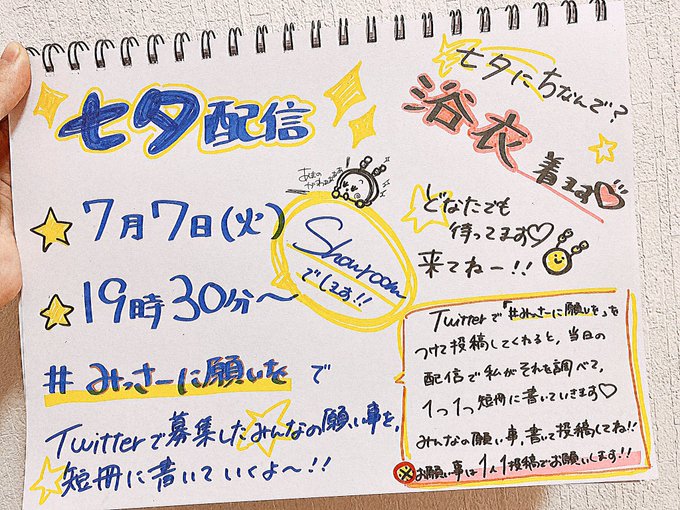 七夕配信
七夕にちなんで?
浴衣
着ます♡
☆7月7日(火)
Showroom
でします!!
どなたでも
待ってます♡
来てねー!!
☆19時30分〜
#みっさーに願いを で
Twitterで募集したみんなの願い事を、
短冊に書いていくよ〜!!
Twitterで「#みっさーに願いを」を
つけて投稿してくれると、当日の
配信で私がそれを調べて、
1つ1つ短冊に書いていきます♡
みんなの願い事、書いて投稿してね!!
※お願い事は1人1投稿でお願いします!!